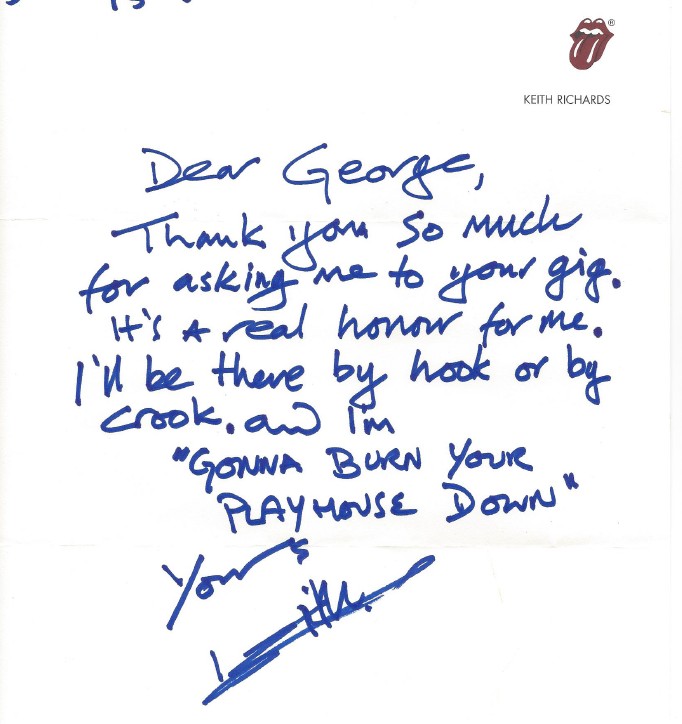 KEITH RICHARDS
Dear George,
Thank you so much
for asking me to your gig.
It's a real honour for me.
I'll be there by hook or by
crook. and I'm
"GONNA BURN YOUR
PLAYHOUSE DOWN"
Yours